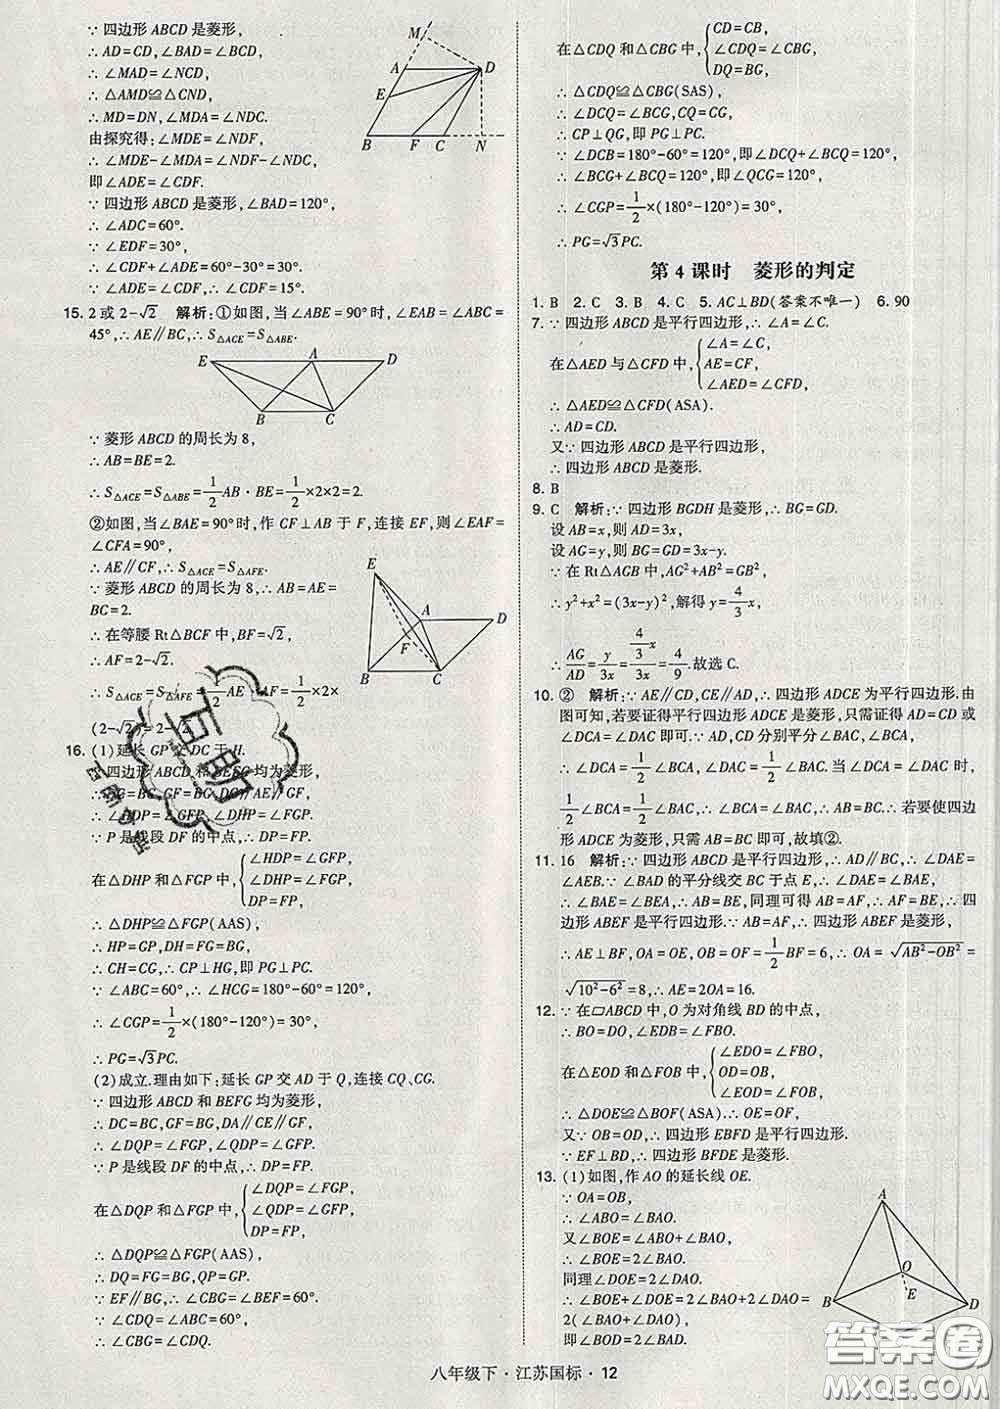 ∵ 四边形 ABCD 是菱形,
∴ AD=CD,∠BAD=∠BCD,
∴ ∠MAD=∠NCD,
∴ △AMD≌△CND,
∴ MD=DN,∠MDA=∠NDC.
由探究得:∠MDE=∠NDF,
∴ ∠MDE-∠MDA=∠NDF-∠NDC,
即∠ADE=∠CDF.
∵ 四边形 ABCD 是菱形,∠BAD=120°,
∴ ∠ADC=60°.
∵ ∠EDF=30°,
∴ ∠CDF+∠ADE=60°-30°=30°.
∴ ∠CDF=∠ADE=15°.
M
A
D
E
B
F
C
N
15. 2 或 2-√2 解析:①如图,当∠ABE=90°时,∠EAB=∠ABC=
45°,∴ AE∥BC,∴ S△ACE=S△ABE.
E
A
D
B
C
∵ 菱形 ABCD 的周长为 8,
∴ AB=BE=2.
∴ S△ACE=S△ABE=1/2 AB·BE=1/2×2×2=2.
②如图,当∠BAE=90°时,作 CF⊥AB 于 F,连接 EF,则∠EAF=
∠CFA=90°,
∴ AE∥CF,∴ S△ACE=S△AFE.
∵ 菱形 ABCD 的周长为 8,∴ AB=AE=
BC=2.
∴ 在等腰 Rt△BCF 中,BF=√2,
∴ AF=2-√2.
∴ S△ACE=S△AFE=1/2 AE·AF=1/2×2×
(2-√2)=2-√2.
E
A
D
F
B
C
16. (1)延长 GP 交 DC 于 H.
∵ 四边形 ABCD 和 BEFG 均为菱形,
∴ FG=BG,BG∥DC∥AE∥GF,
∴ ∠HDP=∠GFP,∠DHP=∠FGP.
∵ P 是线段 DF 的中点,∴ DP=FP.
在△DHP 和△FGP 中,{∠HDP=∠GFP, ∠DHP=∠FGP, DP=FP,
∴ △DHP≌△FGP(AAS),
∴ HP=GP,DH=FG=BG,
∴ CH=CG,∴ CP⊥HG,即 PG⊥PC.
∵ ∠ABC=60°,∴ ∠HCG=180°-60°=120°,
∴ ∠CGP=1/2×(180°-120°)=30°,
∴ PG=√3PC.
(2)成立.理由如下:延长 GP 交 AD 于 Q,连接 CQ、CG.
∵ 四边形 ABCD 和 BEFG 均为菱形,
∴ DC=BC,GF=BG,DA∥CE∥GF,
∴ ∠DQP=∠FGP,∠QDP=∠GFP.
∵ P 是线段 DF 的中点,∴ DP=FP,
在△DQP 和△FGP 中,{∠DQP=∠FGP, ∠QDP=∠GFP, DP=FP,
∴ △DQP≌△FGP(AAS),
∴ DQ=FG=BG,QP=GP.
∵ EF∥BG,∴ ∠CBG=∠BEF=60°.
∵ ∠CDQ=∠ABC=60°,
∴ ∠CBG=∠CDQ.
在△CDQ 和△CBG 中,{CD=CB, ∠CDQ=∠CBG, DQ=BG,
∴ △CDQ≌△CBG(SAS),
∴ ∠DCQ=∠BCG,CQ=CG,
∴ CP⊥QG,即 PG⊥PC.
∵ ∠DCB=180°-60°=120°,即∠DCQ+∠BCQ=120°,
∴ ∠BCG+∠BCQ=120°,即∠QCG=120°,
∴ ∠CGP=1/2×(180°-120°)=30°,
∴ PG=√3PC.
第 4 课时 菱形的判定
1. B 2. C 3. B 4. C 5. AC⊥BD(答案不唯一) 6. 90
7. ∵ 四边形 ABCD 是平行四边形,∴ ∠A=∠C.
在△AED 与△CFD 中,{∠A=∠C, AE=CF, ∠AED=∠CFD,
∴ △AED≌△CFD(ASA).
∴ AD=CD.
又∵ 四边形 ABCD 是平行四边形,
∴ 四边形 ABCD 是菱形.
8. B
9. C 解析:∵ 四边形 BGDH 是菱形,∴ BG=GD.
设 AB=x,则 AD=3x,
设 AG=y,则 BG=GD=3x-y.
∵ 在 Rt△AGB 中,AG²+AB²=GB²,
∴ y²+x²=(3x-y)²,解得 y=4/3 x,
∴ AG/AD=y/3x=(4/3 x)/3x=4/9.故选 C.
10. ② 解析:∵ AE∥CD,CE∥AD,∴ 四边形 ADCE 为平行四边形.由
图可知,若要证得平行四边形 ADCE 是菱形,只需证得 AD=CD 或
∠DCA=∠DAC 即可.∵ AD,CD 分别平分∠BAC,∠BCA,
∴ ∠DCA=1/2∠BCA,∠DAC=1/2∠BAC.当∠DCA=∠DAC 时,
1/2∠BCA=1/2∠BAC,∴ ∠BCA=∠BAC.∴ 若要使四边
形 ADCE 为菱形,只需 AB=BC 即可,故填②.
11. 16 解析:∵ 四边形 ABCD 是平行四边形,∴ AD∥BC,∴ ∠DAE=
∠AEB.∵ ∠BAD 的平分线交 BC 于点 E,∴ ∠DAE=∠BAE,
∴ ∠BAE=∠BEA,∴ AB=BE,同理可得 AB=AF,∴ AF=BE,∴ 四
边形 ABEF 是平行四边形.∵ AB=AF,∴ 四边形 ABEF 是菱形,
∴ AE⊥BF,OA=OE,OB=OF=1/2 BF=6,∴ OA=√(AB²-OB²)=
√(10²-6²)=8,∴ AE=2OA=16.
12. ∵ 在▱ABCD 中,O 为对角线 BD 的中点,
∴ BO=DO,∠EDB=∠FBO.
在△EOD 和△FOB 中,{∠EDO=∠FBO, OD=OB, ∠EOD=∠FOB,
∴ △DOE≌△BOF(ASA).∴ OE=OF,
又∵ OB=OD,∴ 四边形 EBFD 是平行四边形.
∵ EF⊥BD,∴ 四边形 BFDE 是菱形.
13. (1)如图,作 AO 的延长线 OE.
∵ OA=OB,
∴ ∠ABO=∠BAO.
又∠BOE=∠ABO+∠BAO,
∴ ∠BOE=2∠BAO.
同理∠DOE=2∠DAO.
∴ ∠BOE+∠DOE=2∠BAO+2∠DAO=
2(∠BAO+∠DAO),
即∠BOD=2∠BAD.
A
O
E
B
D
八年级下·江苏国标·12
互助
答案圈
MXQE.COM